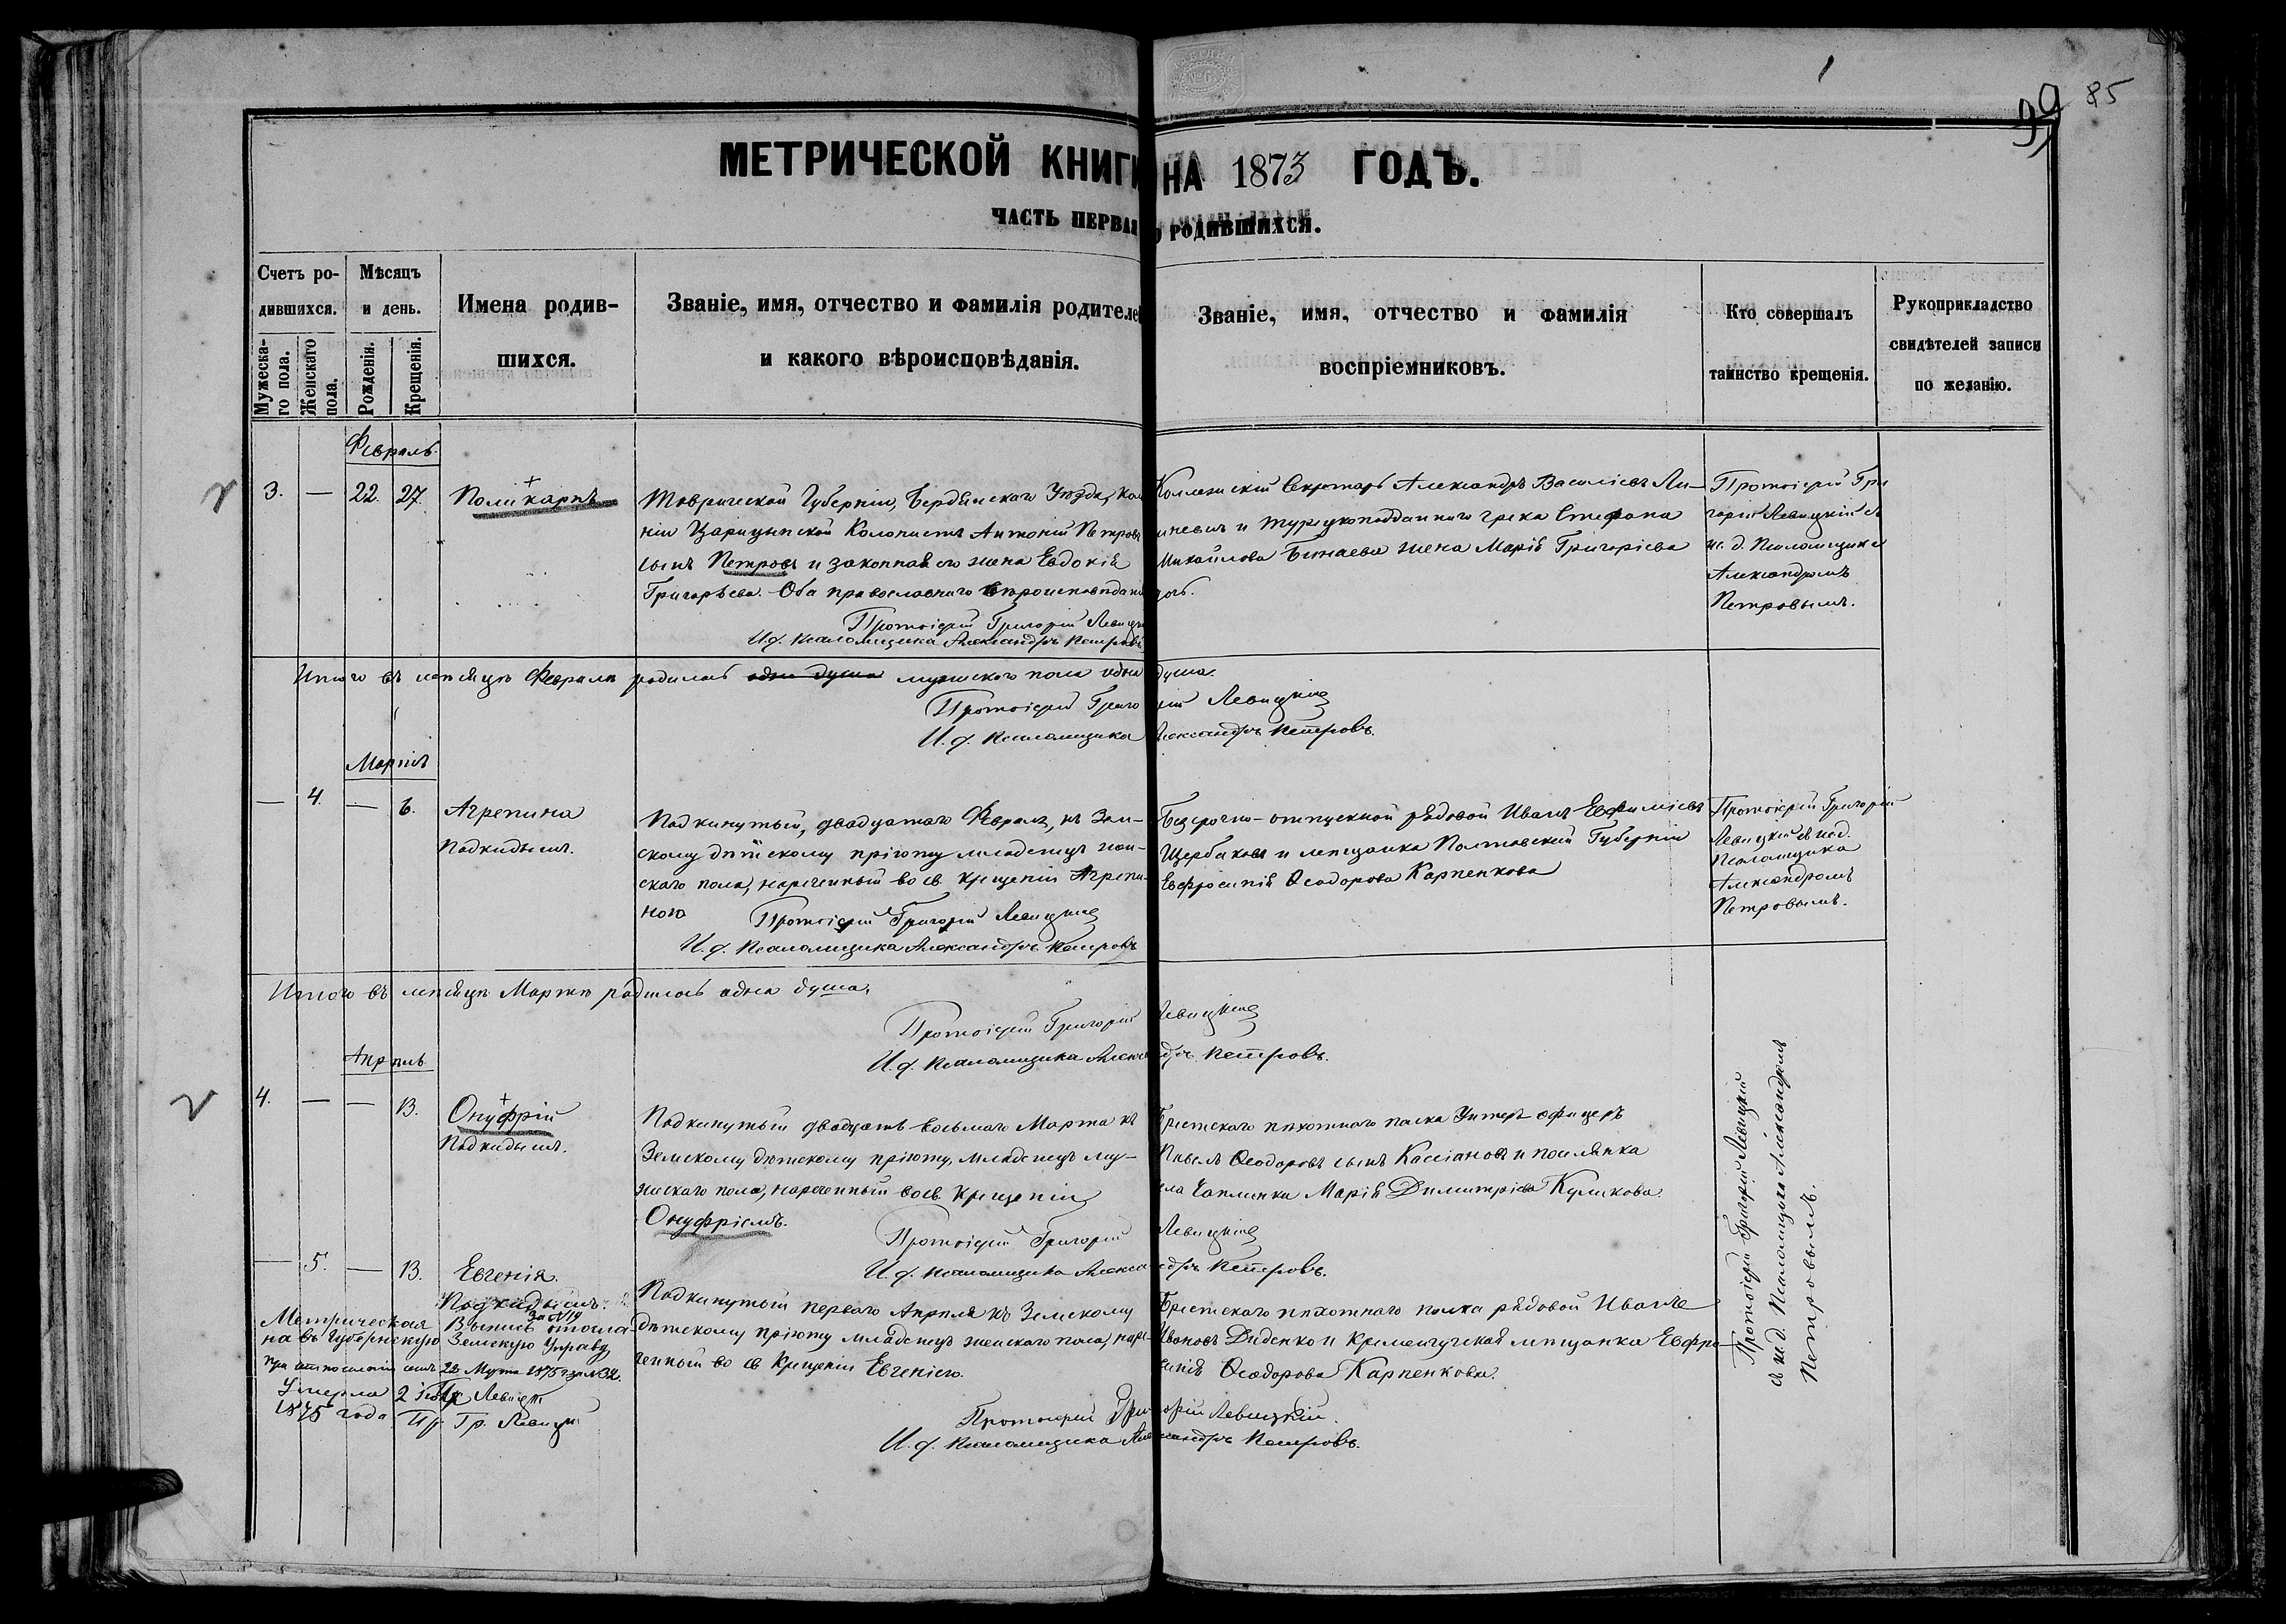 85
39
МЕТРИЧЕСКОЙ КНИГИ НА 1873 ГОДЪ.
ЧАСТЬ ПЕРВАЯ О РОДИВШИХСЯ.
Счетъ ро-
дившихся.
Мужеска-
го пола.
Женскаго
пола.
Мѣсяцъ
и день.
Рожденія.
Крещенія.
Имена родив-
шихся.
Званіе, имя, отчество и фамилія родителей
и какого вѣроисповѣданія.
Званіе, имя, отчество и фамилія
воспріемниковъ.
Кто совершалъ
таинство крещенія.
Рукоприкладство
свидѣтелей записи
по желанію.
Февраль
3. — 22. 27. Поликарпъ
Таврической Губерніи, Бердянскаго Уѣзда, Коло
ніи Царицынской Колонистъ Антоній Петровъ
сынъ Петровъ и законная его жена Евдокія
Григорьева. Оба православнаго вѣроисповѣданія
Протоіерей Григорій Левицкій
И. д. Псаломщика Александръ Петровъ
Коллежскій Секретарь Александръ Василіевъ
и турецкоподданнаго грека Стефана
Михайлова жена Марія Григоріева
Протоіерей Гри
горій Левицкій съ
и. д. Псаломщика
Александромъ
Петровымъ.
Итого въ мѣсяцѣ Февралѣ родилось одна душа мужескаго пола одна душа.
Протоіерей Григорій Левицкій
И. д. Псаломщика Александръ Петровъ.
Мартъ
— 4. — 6. Агрепина
Подкидышъ.
Подкинутый, двадцатаго Февраля, къ Зем-
скому дѣтскому пріюту младенецъ жен-
скаго пола, нареченный во св. крещеніи Агрепи-
ною
Протоіерей Григорій Левицкій
И. д. Псаломщика Александръ Петровъ
Безсрочно-отпускной рядовой Иванъ Евфиміевъ
Щербаковъ и мѣщанка Полтавской Губерніи
Евфросинія Ѳеодорова Карпенкова
Протоіерей Григорій
Левицкій съ и. д.
Псаломщика
Александромъ
Петровымъ.
Итого въ мѣсяцѣ Мартѣ родилось одна душа.
Протоіерей Григорій Левицкій
И. д. Псаломщика Александръ Петровъ.
Апрѣль
4. — — 13. Онуфрій
Подкидышъ.
Подкинутый двадцать восьмаго Марта къ
Земскому дѣтскому пріюту, младенецъ му-
жескаго пола, нареченный во св. Крещеніи
Онуфріемъ.
Протоіерей Григорій Левицкій
И. д. Псаломщика Александръ Петровъ.
Брестскаго пѣхотнаго полка Унтеръ офицеръ
Павелъ Ѳеодоровъ сынъ Кассіановъ и поселянка
села Чаплинки Марія Димитріева Куликова.
— 5. — 13. Евгенія.
Подкидышъ.
Подкинутый перваго Апрѣля къ Земскому
дѣтскому пріюту младенецъ женскаго пола, наре-
ченный во св Крещеніи Евгеніею.
Брестскаго пѣхотнаго полка рядовой Иванъ
Ивановъ Диденко и Кременчугская мѣщанка Евфро
синія Ѳеодорова Карпенкова.
Протоіерей Григорій Левицкій.
И. д. Псаломщика Александръ Петровъ.
Протоіерей Григорій Левицкій
съ и. д. Псаломщика Александромъ
Петровымъ.
за №19
Метрическая Выпись отосла-
на въ Губернскую Земскую Управу,
при отношеніи отъ 22 Марта 1875 г за №32.
Пр Левицкій
Умерла 2
1875 года. Пр. Гр. Левицкій